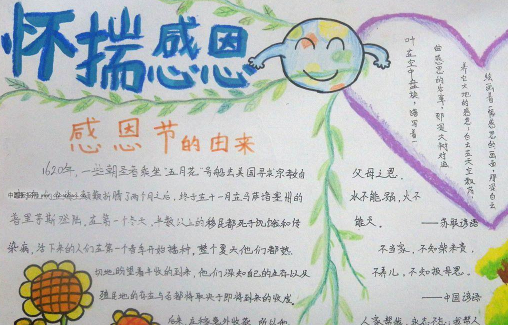 怀揣感恩
感恩节的由来
1620年，一些朝圣者乘坐"五月花"号船去美国寻求宗教自
颠簸折腾了两个月之后，终于在十一月在马萨诸塞州的
普里茅斯登陆，在第一个冬天，半数以上的移民都死于饥饿和传
染病，活下来的人们在第一个春季开始播种，整个夏天他们都热
切地盼望着丰收的到来，他们深知自己的生存以及
殖民地的存在与否都将取决于即将到来的收成。
后来，在
父母之恩，
水不能溺，火不
能灭。
——苏联谚语
不当家，不知柴米贵，
不养儿，不知报母恩。
——中国谚语
叶在空中盘旋，谱写着一
曲感恩的乐章，那是大树对滋
养它大地的感恩；白云在天空飘荡，
绘画着一幅感恩的画卷，那是白云